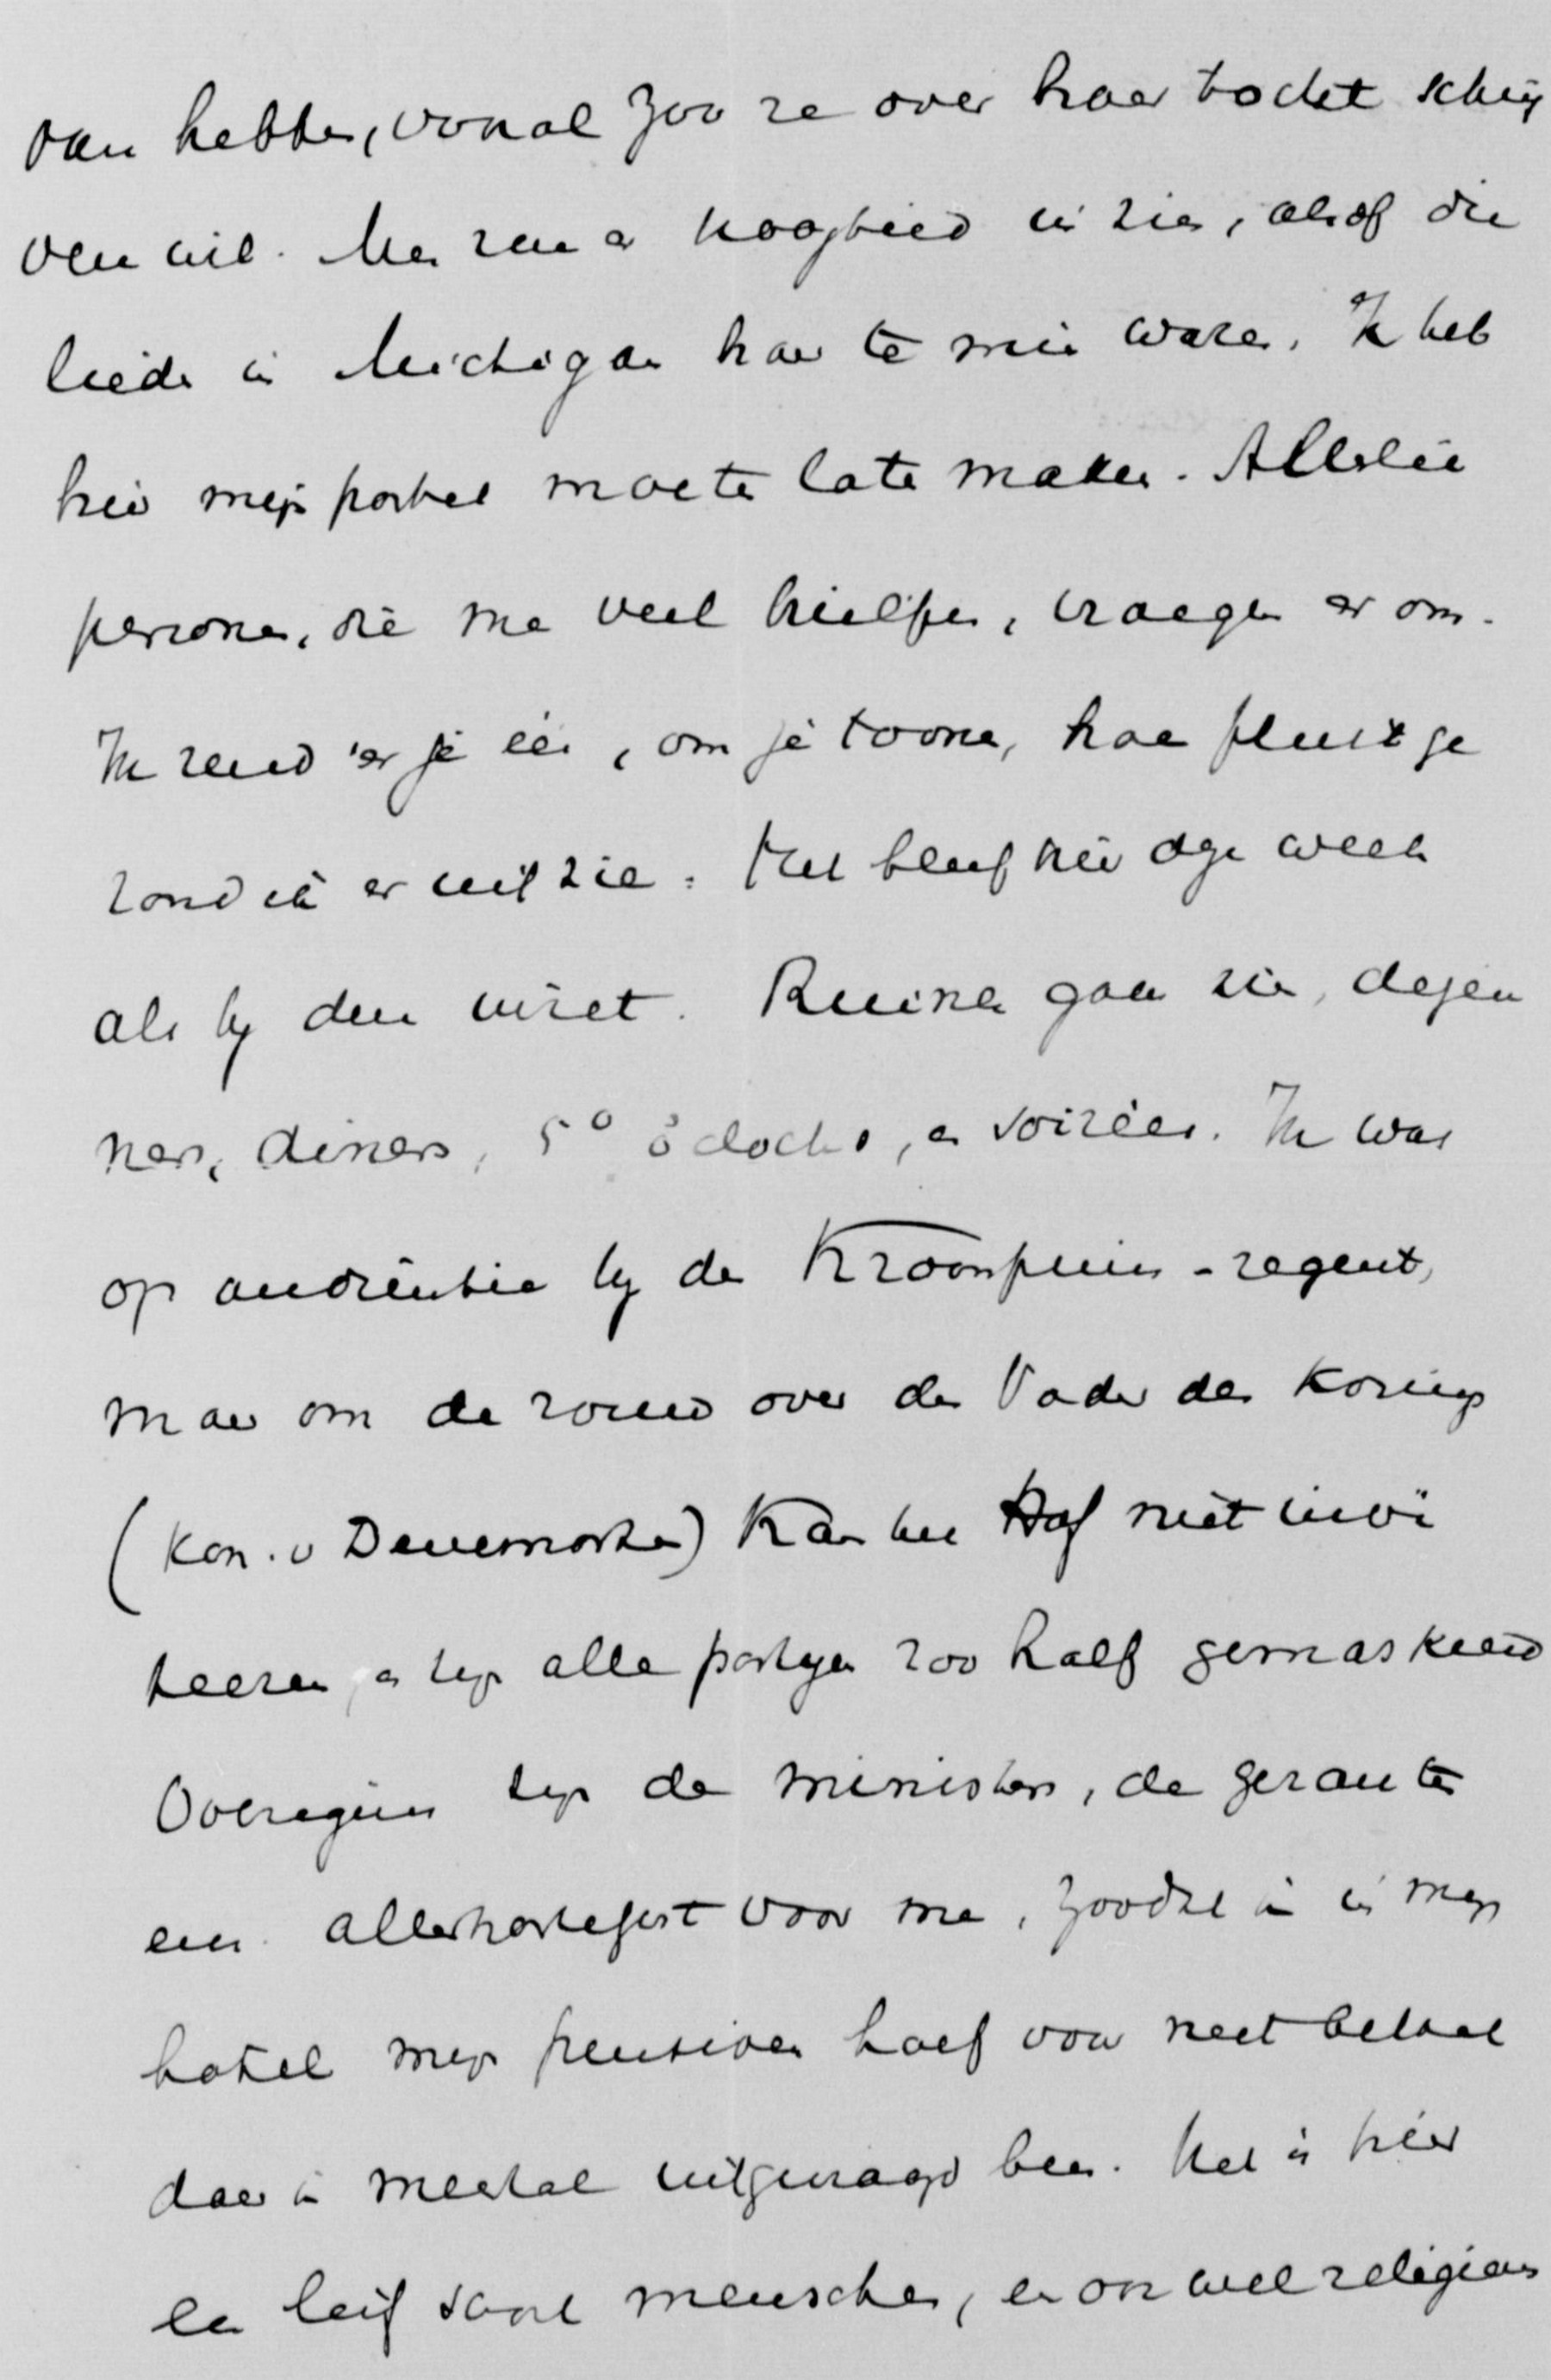 van hebben, vooral zoo ze over haar tocht schrij
ven wil. Men zou er hoogheid in zien, alsof die
lieden in Michigan haar te min waren. Ik heb
hier mijn portret moeten laten maken. Allerlei
personen, die me veel hielpen, vroegen er om.
Ik zend er je één, om je te toonen, hoe
gezond ik er uit zie. Het bleef hier deze week
als bij den vizet. Ruïnen gaan zien, dejeu
ners, diners, 5° o'clocks, en soirées. Ik was
op audiëntie bij den Kroonprins-regent,
maar om de rouw over den Vader des Konings
(Kon. v Denemarken) kan het Hof niet invi
teeren, en zijn alle partijen zoo half gemaskeerd
Overigens zijn de ministers, de gezanten
enz. allerhartelijkst voor me, zoodat ik in mijn
hotel mijn pension half voor niet betaal
daar ik meestal uitgevraagd ben. Het is hier
een lief soort menschen, en ook wel religieus